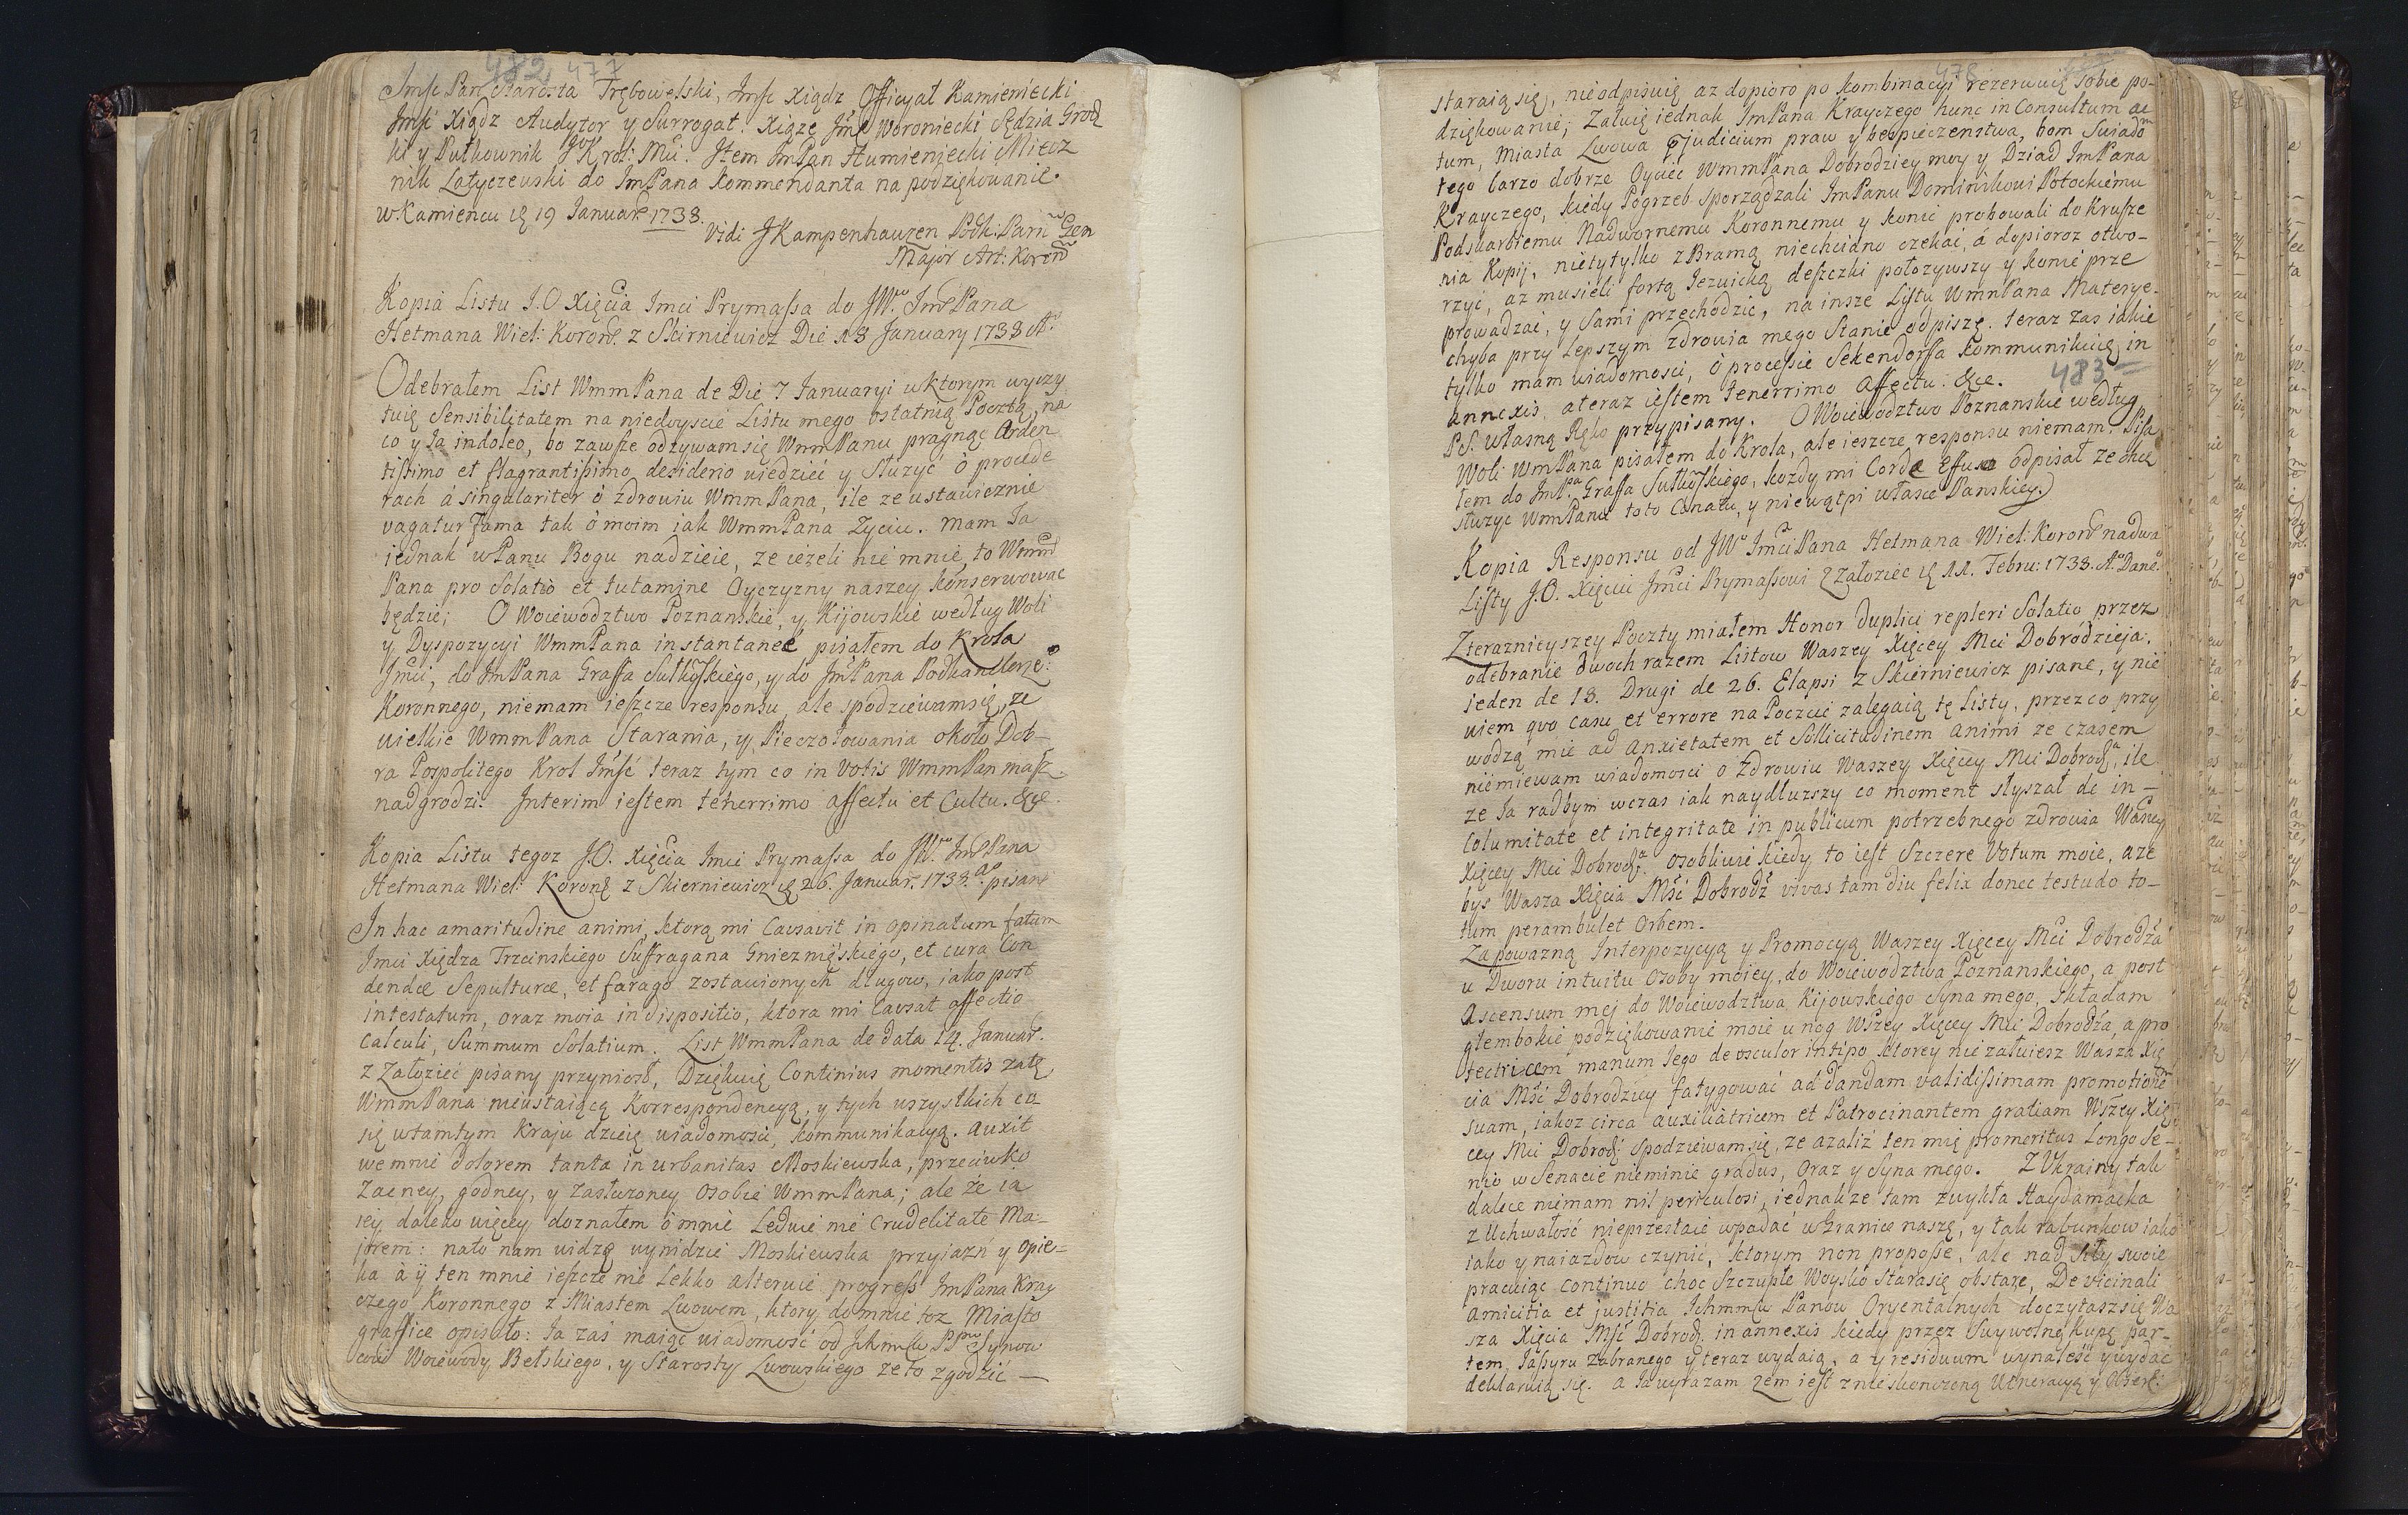 482 477
Imsć Pan Starosta Trębowelski, Imsć Xiądz Officyał Kamieniecki
Imsć Xiądz Audytor y Surrogat. Xiąże Jmć Woroniecki Sędzia Grodz
ki y Pułkownik JKrol: Mći. Item ImPan Humieniecki Miecz
nik Latyczewski do ImPana Kommendanta na podziękowanie.
w Kamiencu d 19 Januarii 1738.
Vidi J Kampenhauzen Gen
Major Art: Koron
Kopia Listu J.O Xięcia Imci Prymassa do JW. ImPana
Hetmana Wiel: Koron. z Skirniewicz Die 13 January 1738 A.
Odebrałem List WmmPana de Die 7 Januaryi w ktorym wyczy
tuię Sensibilitatem na niedoyscie Listu mego ostatnią Pocztą, na
co y Ja indoleo, bo zawsze odzywam się WmmPanu pragnąc Arden
tissimo et flagrantissimo desiderio wiedzieć y Słuzyć o procede
rach á singulariter o zdrowiu WmmPana, ile ze ustawicznie
vagatur Fama tak o moim iak WmmPana Zyciu. Mam Ja
iednak w Panu Bogu nadzieie, ze iezeli nie mnie, to Wmm
Pana pro Solatio et tutamine Oyczyzny naszey konserwować
będzie; O Woiewodztwo Poznanskie, y Kijowskie według Woli
y Dyspozycyi WmmPana instantaneé pisałem do Krola
Jmci, do ImPana Graffa Sułkoskiego, y do ImPana Podkanclerze:
Koronnego, niemam ieszcze responsu, ale spodziewam się, ze
wielkie WmmPana Starania, y Pieczołowania około Dob-
ra Pospolitego Krol Jmść teraz tym co in Votis WmmPan masz
nadgrodzi. Interim iestem tenerrimo affectu et Cultu. &c.
Kopia Listu tegoz J.O. Xięcia Imci Prymassa do JW. ImPana
Hetmana Wiel: Koron z Skierniewicz d 26. Januar. 1738. pisane
In hac amaritudine animi, ktorą mi Causavit in opinatum fatum
Imci Xiędza Trzcinskiego Suffragana Gnieznięskiego, et cura Con
dendæ Sepulturæ, et farago zostawionych długow, iako post
intestatum, oraz moia indispositio, ktora mi Causat affectio
Calculi, Summum Solatium. List WmmPana de data 14. Januar.
z Załoziec pisany przyniosł, Dziękuię Continius momentis zatę
WmmPana nieustaiącą Korrespondencyą, y tych wszystkich co
się w tamtym Kraju dzieią wiadomości, kommunikacyą. auxit
we mnie dolorem tanta in urbanitas Moskiewska, przeciwko
Zacney, godney, y zasłuzoney Osobie WmmPana; ale ze ia
iey daleko więcey doznałem o mnie Ledwie nie Crudelitate Ma-
jorem: nato nam widzę wynidzie Moskiewska przyiazń y opie-
ka à ij ten mnie ieszcze nie Lekko alteruie progress ImPana Kray
czego Koronnego z Miastem Lwowem, ktory do mnie toz Miasto
graffice opisało: Ja zaś maiąc wiadomość od Synow
cow Woiewody Bełskiego, y Starosty Lwowskiego ze to zgodzić —
478
staraią się, nieodpisuię az dopioro po kombinacyi rezerwuię sobie po-
dziękowanie; Załuię iednak ImPana Krayczego hunc in Consultum ac
tum, Miasta Lwowa judicium praw y bespieczenstwa, bom Swiado
tego barzo dobrze Oyciec WmmPana Dobrodziey moy y Dziad ImPana
Krayczego, kiedy Pogrzeb sporządzali ImPanu Dominikowi Potockiemu
Podskarbiemu Nadwornemu Koronnemu y konie probowali do krusze
nia Kopij, nietytylko z Bramą niechciano czekać, á dopioroz otwo-
rzyć, az musieli fortą Jezuicką deszczki połozywszy y konie prze
prowadzać, y Sami przechodzić, na insze Listu WmmPana Materye
chyba przy Lepszym zdrowia mego Stanie odpiszę. teraz zas iakie
tylko mam wiadomosci, o processie Sekendorffa kommunikuię in
annexis. a teraz iestem tenerrimo affectu. &c. 483
PS. własną Ręką przypisany. O Woiewodztwo Poznanskie według
Woli WmPana pisałem do Krola, ale ieszcze responsu niemam. Pisa
łem do ImP Graffa Sułkoskiego, kozdy mi Corde Effuso odpisał ze chce
słuzyc WmPanu toto Conatu, y niewątpi w łasce Panskiey.)
Kopia Responsu od JW ImciPana Hetmana Wiel: Koron nadwa
Listy J.O. Xięciu Jmći Prymassowi z Załoziec d 11. Febru: 1738. A.
Zteraznieyszey Poczty miałem Honor duplici repleri Solatio przez
odebranie dwoch razem Listow Waszey Xięcey Mci Dobrodzieja.
ieden de 13. Drugi de 26. Elapsi z Skierniewicz pisane, y nie
wiem quo casu et errore na Poczcie zalegaią tę Listy, przez co przy
wodzą mie ad anxietatem et Sollicitudinem animi ze czasem
niemiewam wiadomosci o zdrowiu Waszey Xięcey Mci Dobrodz, ile
ze Ja radbym wczas iak naydłuzszy co moment słyszał de in-
columitate et integritate in publicum potrzebnego zdrowia Waszey
Xięcey Mci Dobrodz. osobliwie kiedy to iest Szczere Votum moie, aze
bys Wasza Xięcia Mść Dobrodz vivas tam diu felix donec testudo to-
tum perambulet Orbem.
Za powazną Interpozycyą y Promocyą Waszey Xięcey Mći Dobrodza
u Dworu intuitu Osoby moiey, do Woiewodztwa Poznanskiego, a post
Ascensum mej do Woiewodztwa Kijowskiego Syna mego, składam
głembokie podziękowanie moie u nog Wszey Xięcey Mci Dobrodza, a pro
tectricem manum Jego deosculor intipo ktorey nie załuiesz Wasza Xię
cia Mść Dobrodziey fatygować ad dandam validissimam promotione
suam, iakoz circa auxiliatricem et Patrocinantem gratiam Wszey Xię
cey Mci Dobrodz spodziewam się, ze azaliż ten mię promeritus Longo Se-
nio w Senacie nieminie gradus, oraz y Syna mego. Z Ukrainy tak
dalece niemam nil periculosi, iednakze tam zwykła Haydamacka
z Uchwałość nieprzestaie wpadać w Granice nasze, y tak rabunkow iako
iako y naiazdow czynić, ktorym non proposse, ale nad siły swoie
pracuiąc continuo choc Szczupłe Woysko stara się obstare, De vicinali
amicitia et justitia Ichmmciw Panow Oryentalnych doczytasz się Wa
sza Xięcia Mść Dobrodz. in annexis kiedy przez Swywolną Kupę par-
tem Jassyru zabranego y teraz wydaią, a y residuum wynaleść y wydać
deklaruią się. a Ja wyrazam zem iest z nieskonczoną Weneracyą y Obser: